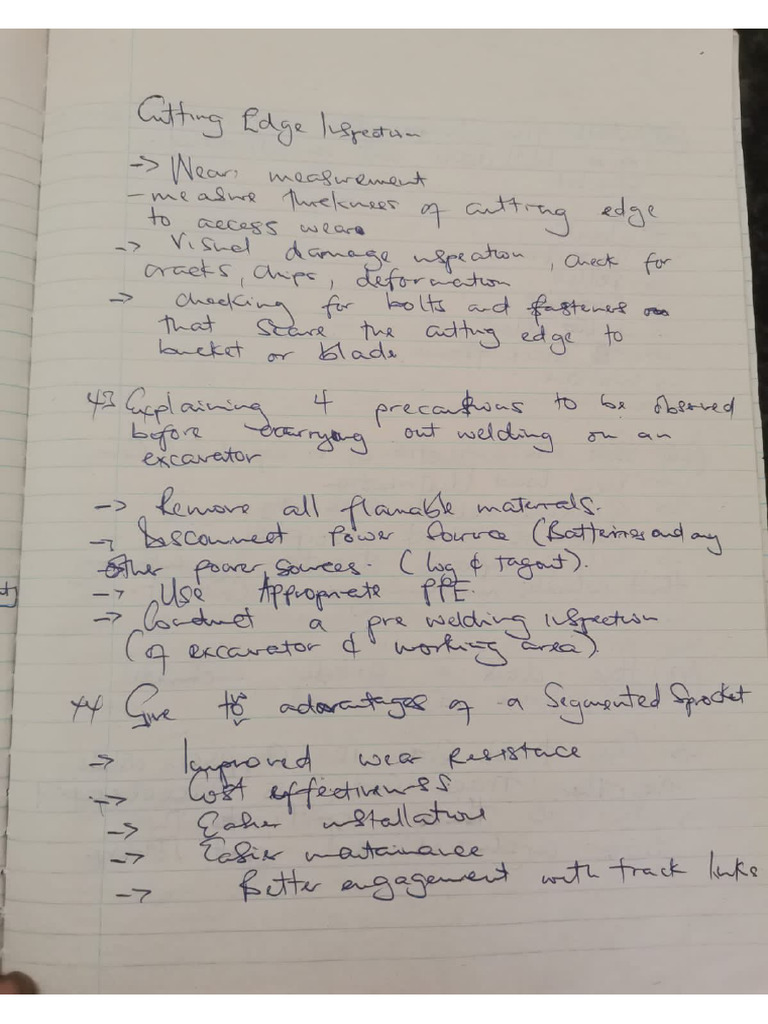 Cutting Edge Inspection
-> Wear: measurement
- measure thickness of cutting edge
to access wear
-> Visual damage inspection, check for
cracks, chips, deformation
-> checking for bolts and fasteners
that secure the cutting edge to
bucket or blade
43 Explaining 4 precautions to be observed
before carrying out welding on an
excavator
-> Remove all flamable materials.
-> Disconnect Power Source (Batteries and any
other power sources. (log & tagout).
-> Use Appropriate PPE.
-> Conduct a pre welding inspection
(of excavator & working area)
44 Give advantages of a Segmented Sprocket
-> Improved wear Resistace
-> Cost effectiveness
-> Easier installation
-> Easier maintainance
-> Better engagement with track links